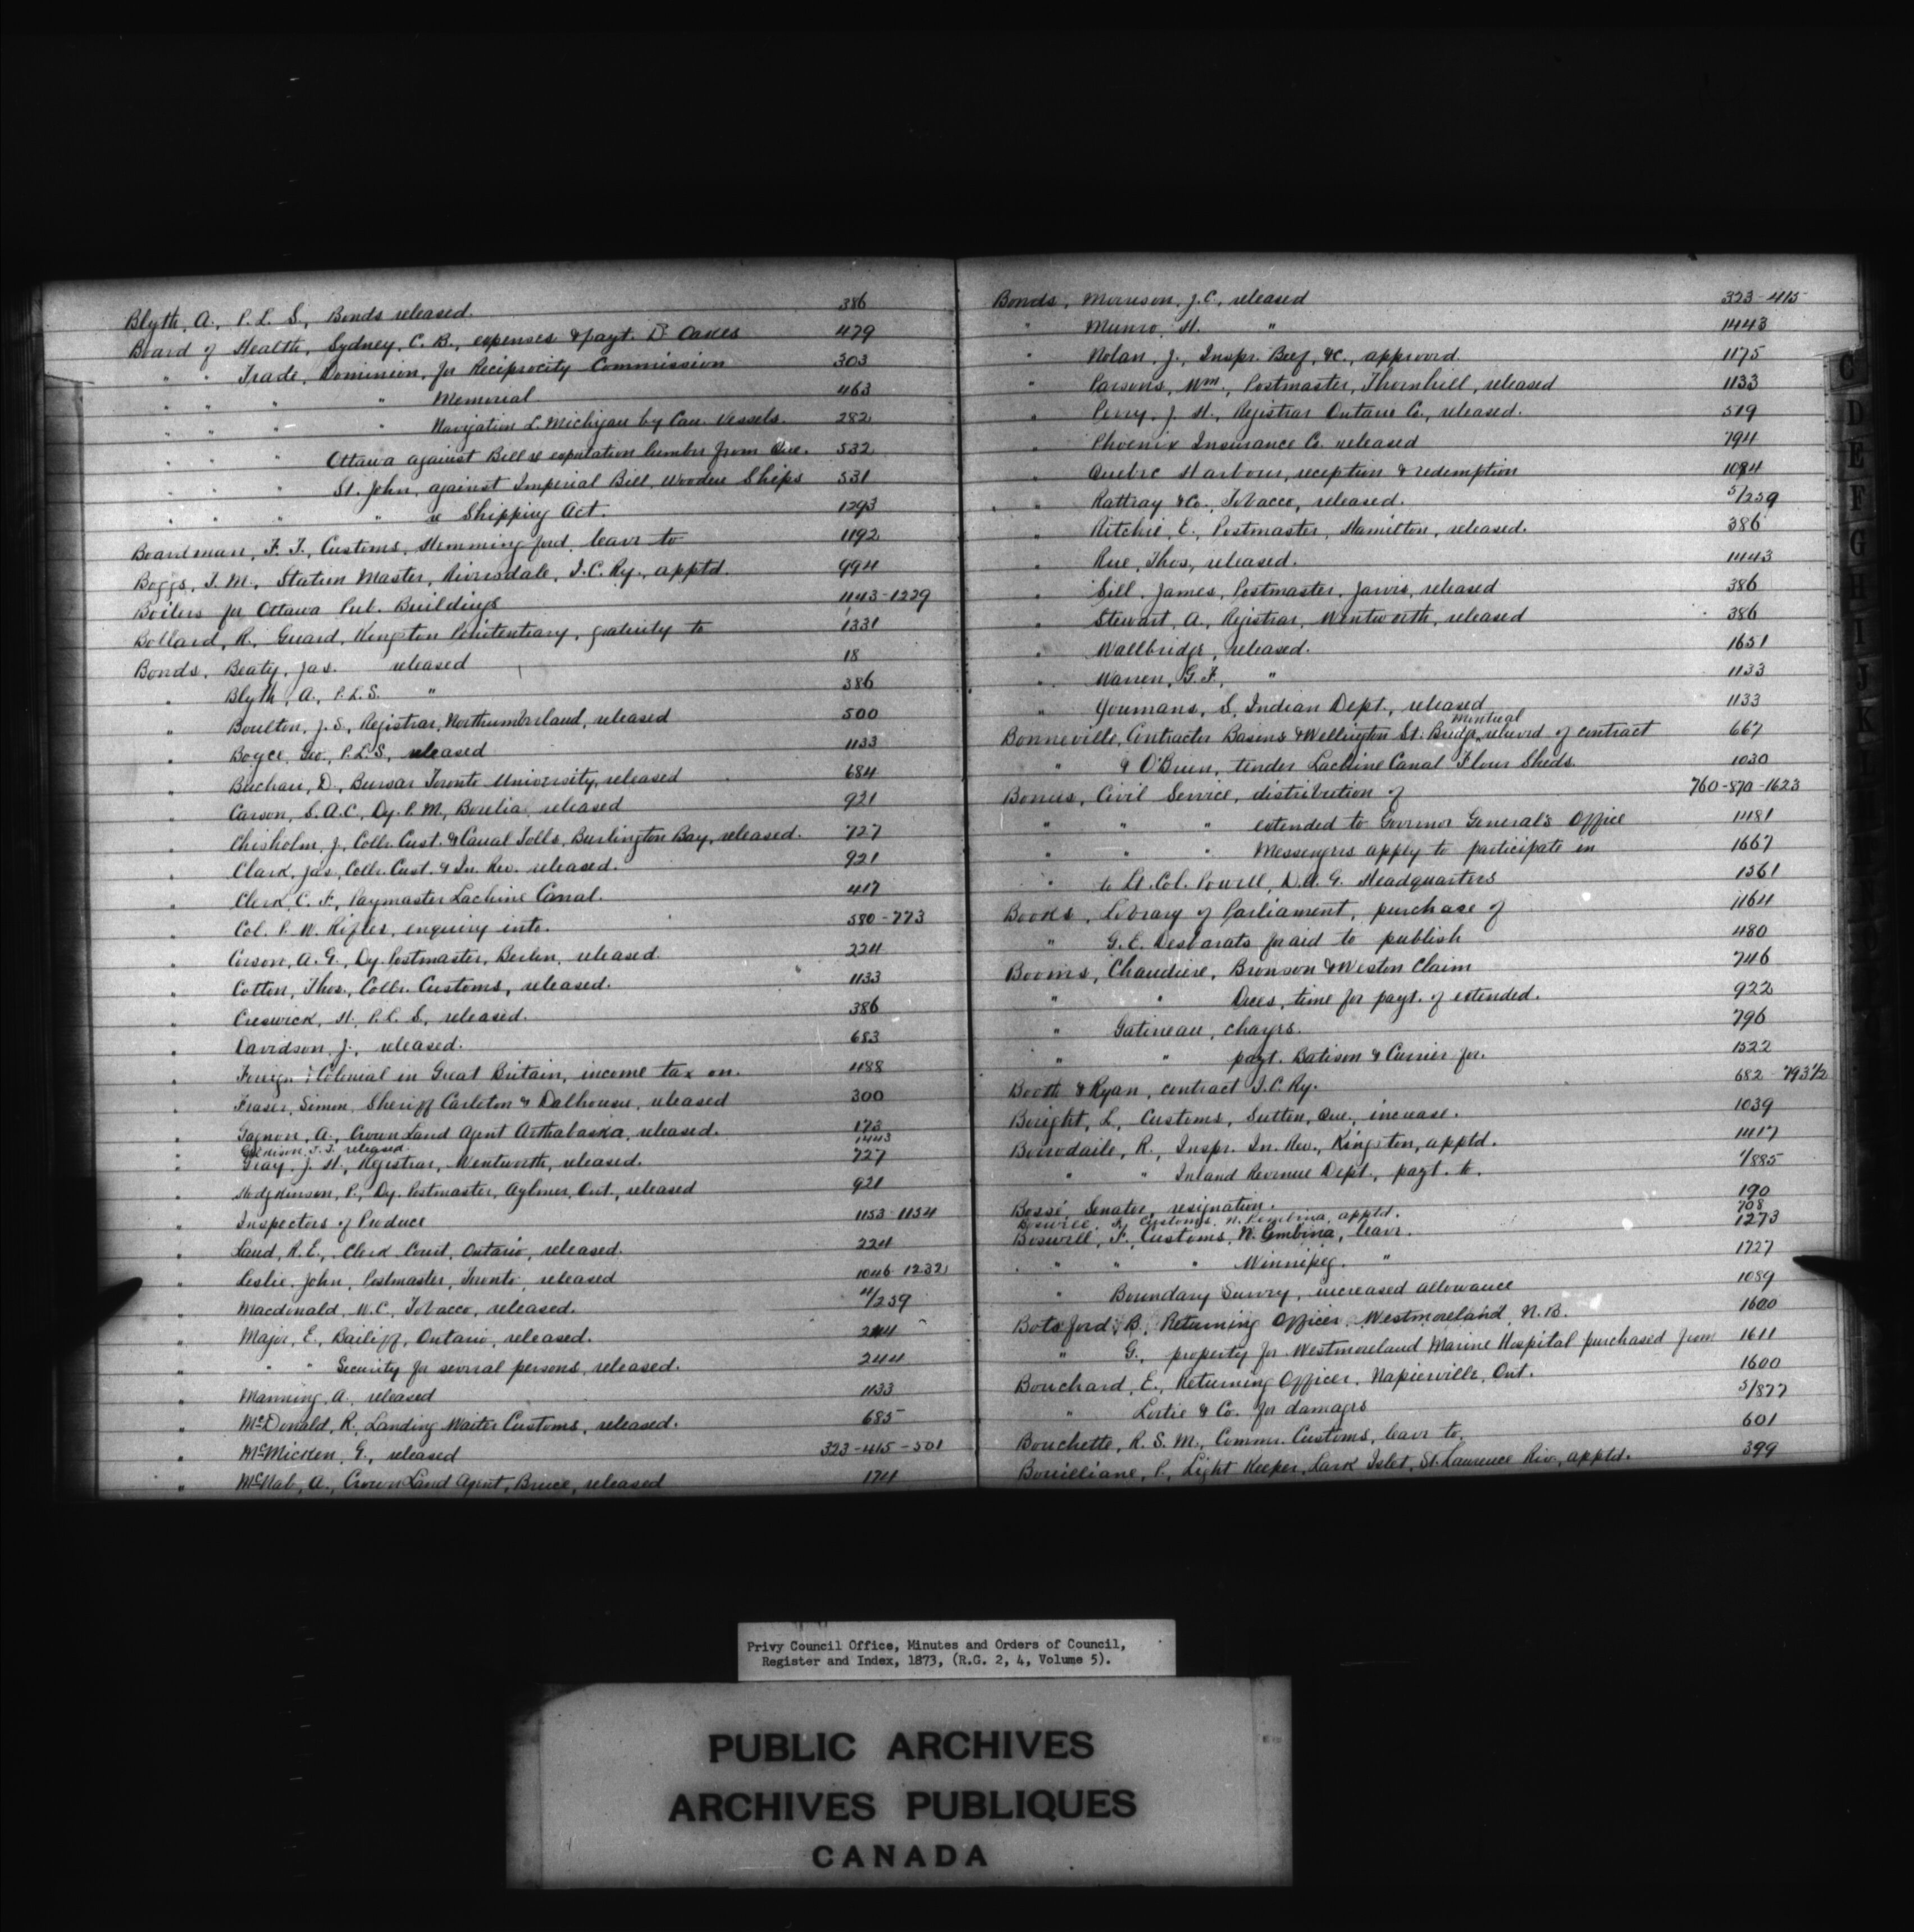 Blyth, A., P. L. S., Bonds released. 386
Board of Health, Sydney, C. B., expenses & payt. Dr 479
" " Trade, Dominion, for Reciprocity Commission 303
" " " " Memorial 463
" " " " Navigation L. Michigan by Can. Vessels. 282
" " " Ottawa against Bill re exportation lumber from Que. 532
" " " St. John, against Imperial Bill, Wooden Ships 531
" " " " re Shipping Act 1293
Boardman, F. T., Customs, Hemmingford, leave to 1192
Boggs, T. M., Station Master, Riversdale, I. C. Ry., apptd. 994
Boilers for Ottawa Pub. Buildings 1143-1229
Bollard, R., Guard, Kingston Penitentiary, gratuity to 1331
Bonds, Beaty, Jas. released 18
" Blyth, A., P. L. S. " 386
" Boulton, J. S., Registrar, Northumberland, released 500
" Boyce, Geo., P. L. S., released 1133
" Buchan, D., Bursar Toronto University, released 684
" Carson, S. A. C., Dy. P. M., released 921
" Chisholm, J., Collr. Cust. & Canal Tolls, Burlington Bay, released. 727
" Clark, Jas., Collr. Cust. & In. Rev. released. 921
" Clerk, C. F., Paymaster Lachine Canal. 417
" Col. P. W. Rifles, enquiry into. 580-773
" Corson, A. G., Dy. Postmaster, Berlin, released. 224
" Cotton, Thos., Collr. Customs, released. 1133
" Creswick, H., P. L. S., released. 386
" Davidson, J., released. 683
" Foreign & Colonial in Great Britain, income tax on. 1188
" Fraser, Simon, Sheriff Carleton & Dalhousie, released 300
" Gagnon, A., Crown Land Agent Arthabaska, released. 173
" released. 1443
" Gray, J. H., Registrar, Wentworth, released. 727
" Hodgkinson, P., Dy. Postmaster, Aylmer, Ont., released 921
" Inspectors of Produce 1153-1134
" Land, R. E., Clerk Court, Ontario, released. 224
" Leslie, John, Postmaster, Toronto, released 1046-1232
" Macdonald, W. C., Tobacco, released. 4/259
" Major, E., Bailiff, Ontario, released. 244
" " " Security for several persons, released. 244
" Manning, A., released 1133
" McDonald, R., Landing Waiter Customs, released. 685
" McMicken, G., released 323-415-501
" McNab, A., Crown Land Agent, Bruce, released 174
Bonds, Morrison, J. C., released 323-415
" Munro, H. " 1443
" Nolan, J., Inspr. Beef, &c., approved. 1175
" Parsons, Wm., Postmaster, Thornhill, released 1133
" Perry, J. H., Registrar Ontario Co., released. 519
" Phoenix Insurance Co. released 794
" Quebec Harbour, reception & redemption 1084
" Rattray & Co., Tobacco, released. 5/259
" Ritchie, E., Postmaster, Hamilton, released. 386
" Rue, Thos., released. 1443
" Sill, James, Postmaster, Jarvis, released 386
" Stewart, A., Registrar, Wentworth, released 386
" Wallbridge, released. 1651
" Warren, G. F., " 1133
" Youmans, S., Indian Dept., released 1133
Bonneville, Contractor Basins & Wellington St. Bridge, Montreal, relieved of contract 667
" & O'Brien, tender Lachine Canal Flour Sheds. 1030
Bonus, Civil Service, distribution of 760-870-1623
" " " extended to Governor General's Office 1481
" " " Messengers apply to participate in 1667
" to Lt. Col. Powell, D. A. G. Headquarters 1361
Books, Library of Parliament, purchase of 1164
" G. E. Desbarats for aid to publish 480
Booms, Chaudiere, Bronson & Weston Claim 746
" " Dues, time for payt. of extended. 922
" Gatineau, charges. 796
" " payt. Batison & Currier for. 1522
Booth & Ryan, contract I. C. Ry. 682-793½
Boright, L., Customs, Sutton, Que., increase. 1039
Borrodaile, R., Inspr. In. Rev., Kingston, apptd. 1417
" " Inland Revenue Dept., payt. to. 1/885
Bossé, Senator, resignation. 190
Boswell, F., Customs, N. Pembina, apptd. 708
Boswell, F., Customs, N. Pembina, leave. 1273
" " " Winnipeg. " 1727
" Boundary Survey, increased allowance 1089
Botsford, B., Returning Officer, Westmoreland, N. B. 1600
" G., property for Westmoreland Marine Hospital purchased from 1611
Bouchard, E., Returning Officer, Napierville, Ont. 1600
" Lortie & Co. for damages 5/877
Bouchette, R. S. M., Commr. Customs, leave to. 601
Bouilliane, P., Light Keeper, Lark Islet, St. Lawrence Riv., apptd. 399
C
D
E
F
G
H
I
J
K
Privy Council Office, Minutes and Orders of Council,
Register and Index, 1873, (R.G. 2, 4, Volume 5).
PUBLIC ARCHIVES
ARCHIVES PUBLIQUES
CANADA